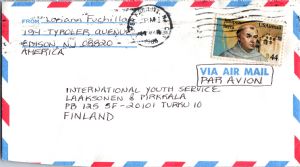 FROM: Doriann Fuchilla
194 TYROLER AVENUE
EDISON, NJ 08820-
AMERICA
PM
USAirmail
44
VIA AIR MAIL
PAR AVION
INTERNATIONAL YOUTH SERVICE
LAAKSONEN & PIRKKALA
PB 125 SF-20101 TURKU 10
FINLAND